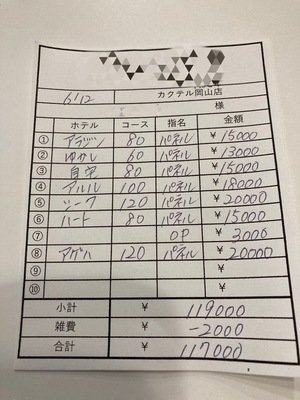 カクテル岡山店
6/12 様
ホテル コース 指名 金額
① アラジン 80 パネル ¥15000
② ゆかし 60 パネル ¥13000
③ 自宅 80 パネル ¥15000
④ アルル 100 パネル ¥18000
⑤ シーク 120 パネル ¥20000
⑥ ハート 80 パネル ¥15000
⑦ OP ¥3000
⑧ アゲハ 120 パネル ¥20000
⑨ ¥
⑩ ¥
小計 ¥ 119000
雑費 ¥ -2000
合計 ¥ 117000